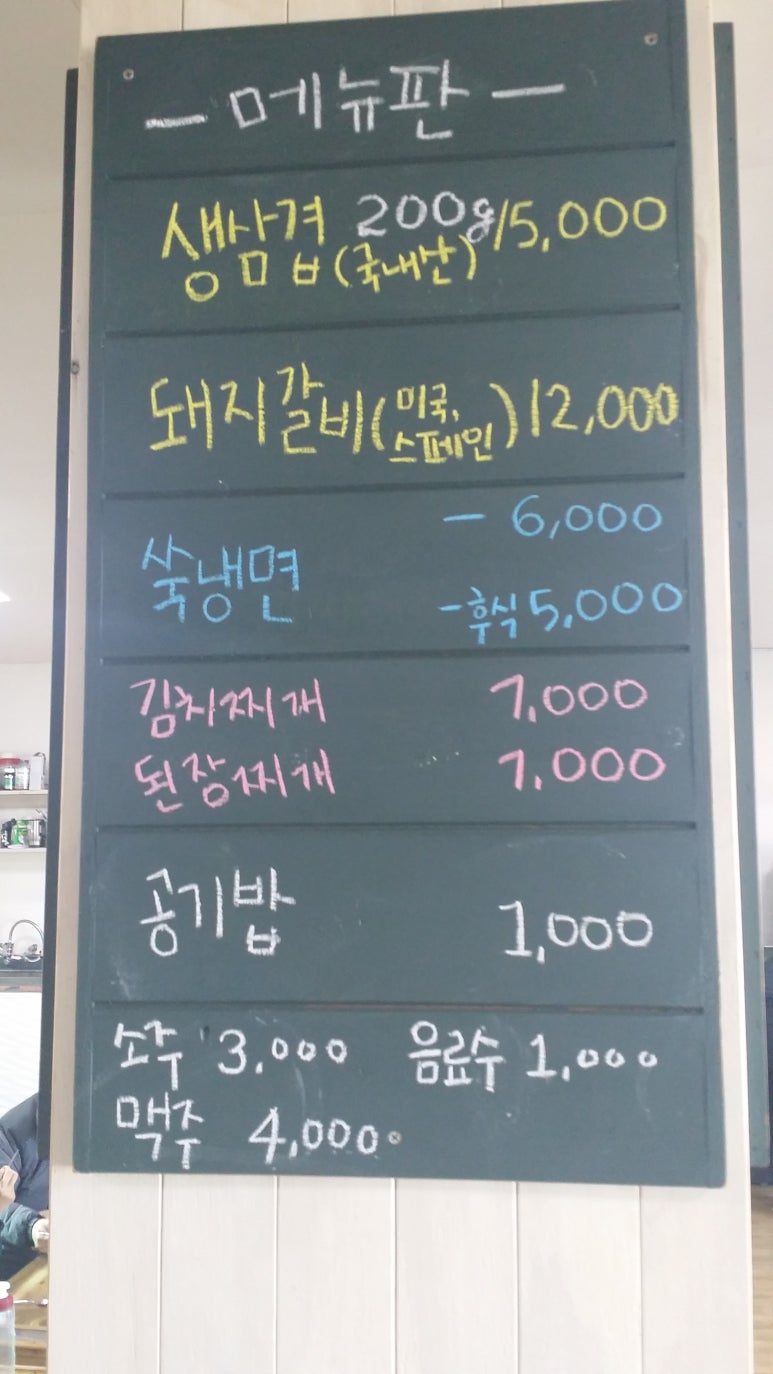 - 메뉴판 -
생삼겹 200g 15,000
(국내산)
돼지갈비(미국, 스페인) 12,000
쑥냉면 - 6,000
- 후식 5,000
김치찌개 7,000
된장찌개 7,000
공기밥 1,000
소주 3,000 음료수 1,000
맥주 4,000